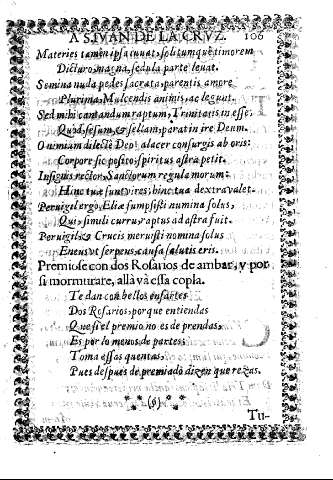 A S. IVAN DE LA CRVZ. 106
Materies tamen ipsa iuuat, solitumque timorem
Dicturo, magna, sedula parte leuat.
Semina nuda pedes sacrata, parentis amore
Plurima, Mulcendis animis, ac legunt.
Sed mihi cantandum raptus, Trinitatis in esse,
Quòd sesum, & sellam, parat in ire Deum.
O nimiam dilecte Deo, alacer consurgis ab oris:
Corpore sic posito, spiritus astra petit.
Insignis rector, Sanctorum regula morum:
Hinc tuæ sunt vires, hinc tua dextra valet.
Peruigil ergo, Eliæ sumpsisti numina solus,
Qui, simili curru, raptus ad astra fuit.
Peruigil, & Crucis meruisti nomina solus
Eneus vt serpens, causa salutis eris.
Premiose con dos Rosarios de ambar, y por
si mormurare, allà và essa copla.
Te dan con bellos ensartes
Dos Rosarios, porque entiendas
Que si el premio no es de prendas,
Es por lo menos de partes:
Toma essas quentas,
Pues despues de premiado dizen que rezas.
(§)
Tu-